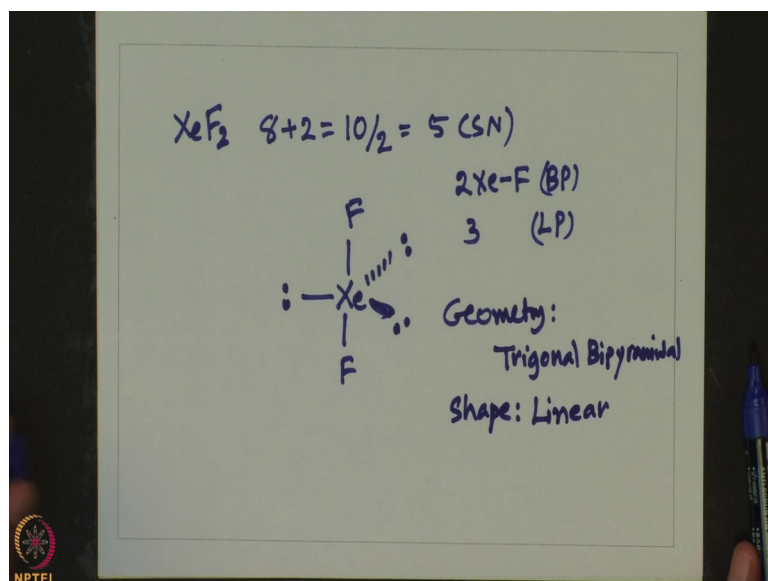 XeF₂ 8+2=10/2 = 5 (SN)
2Xe-F (BP)
3 (LP)
F
:
: Xe
:
F
Geometry:
Trigonal Bipyramidal
Shape: Linear
NPTEL